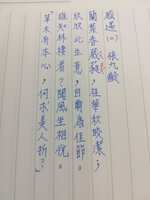 感遇(一) 張九齡
蘭葉春葳蕤,桂華秋皎潔;
欣欣此生意,自爾為佳節。
誰知林棲者,聞風坐相悅。
草木有本心,何求美人折?